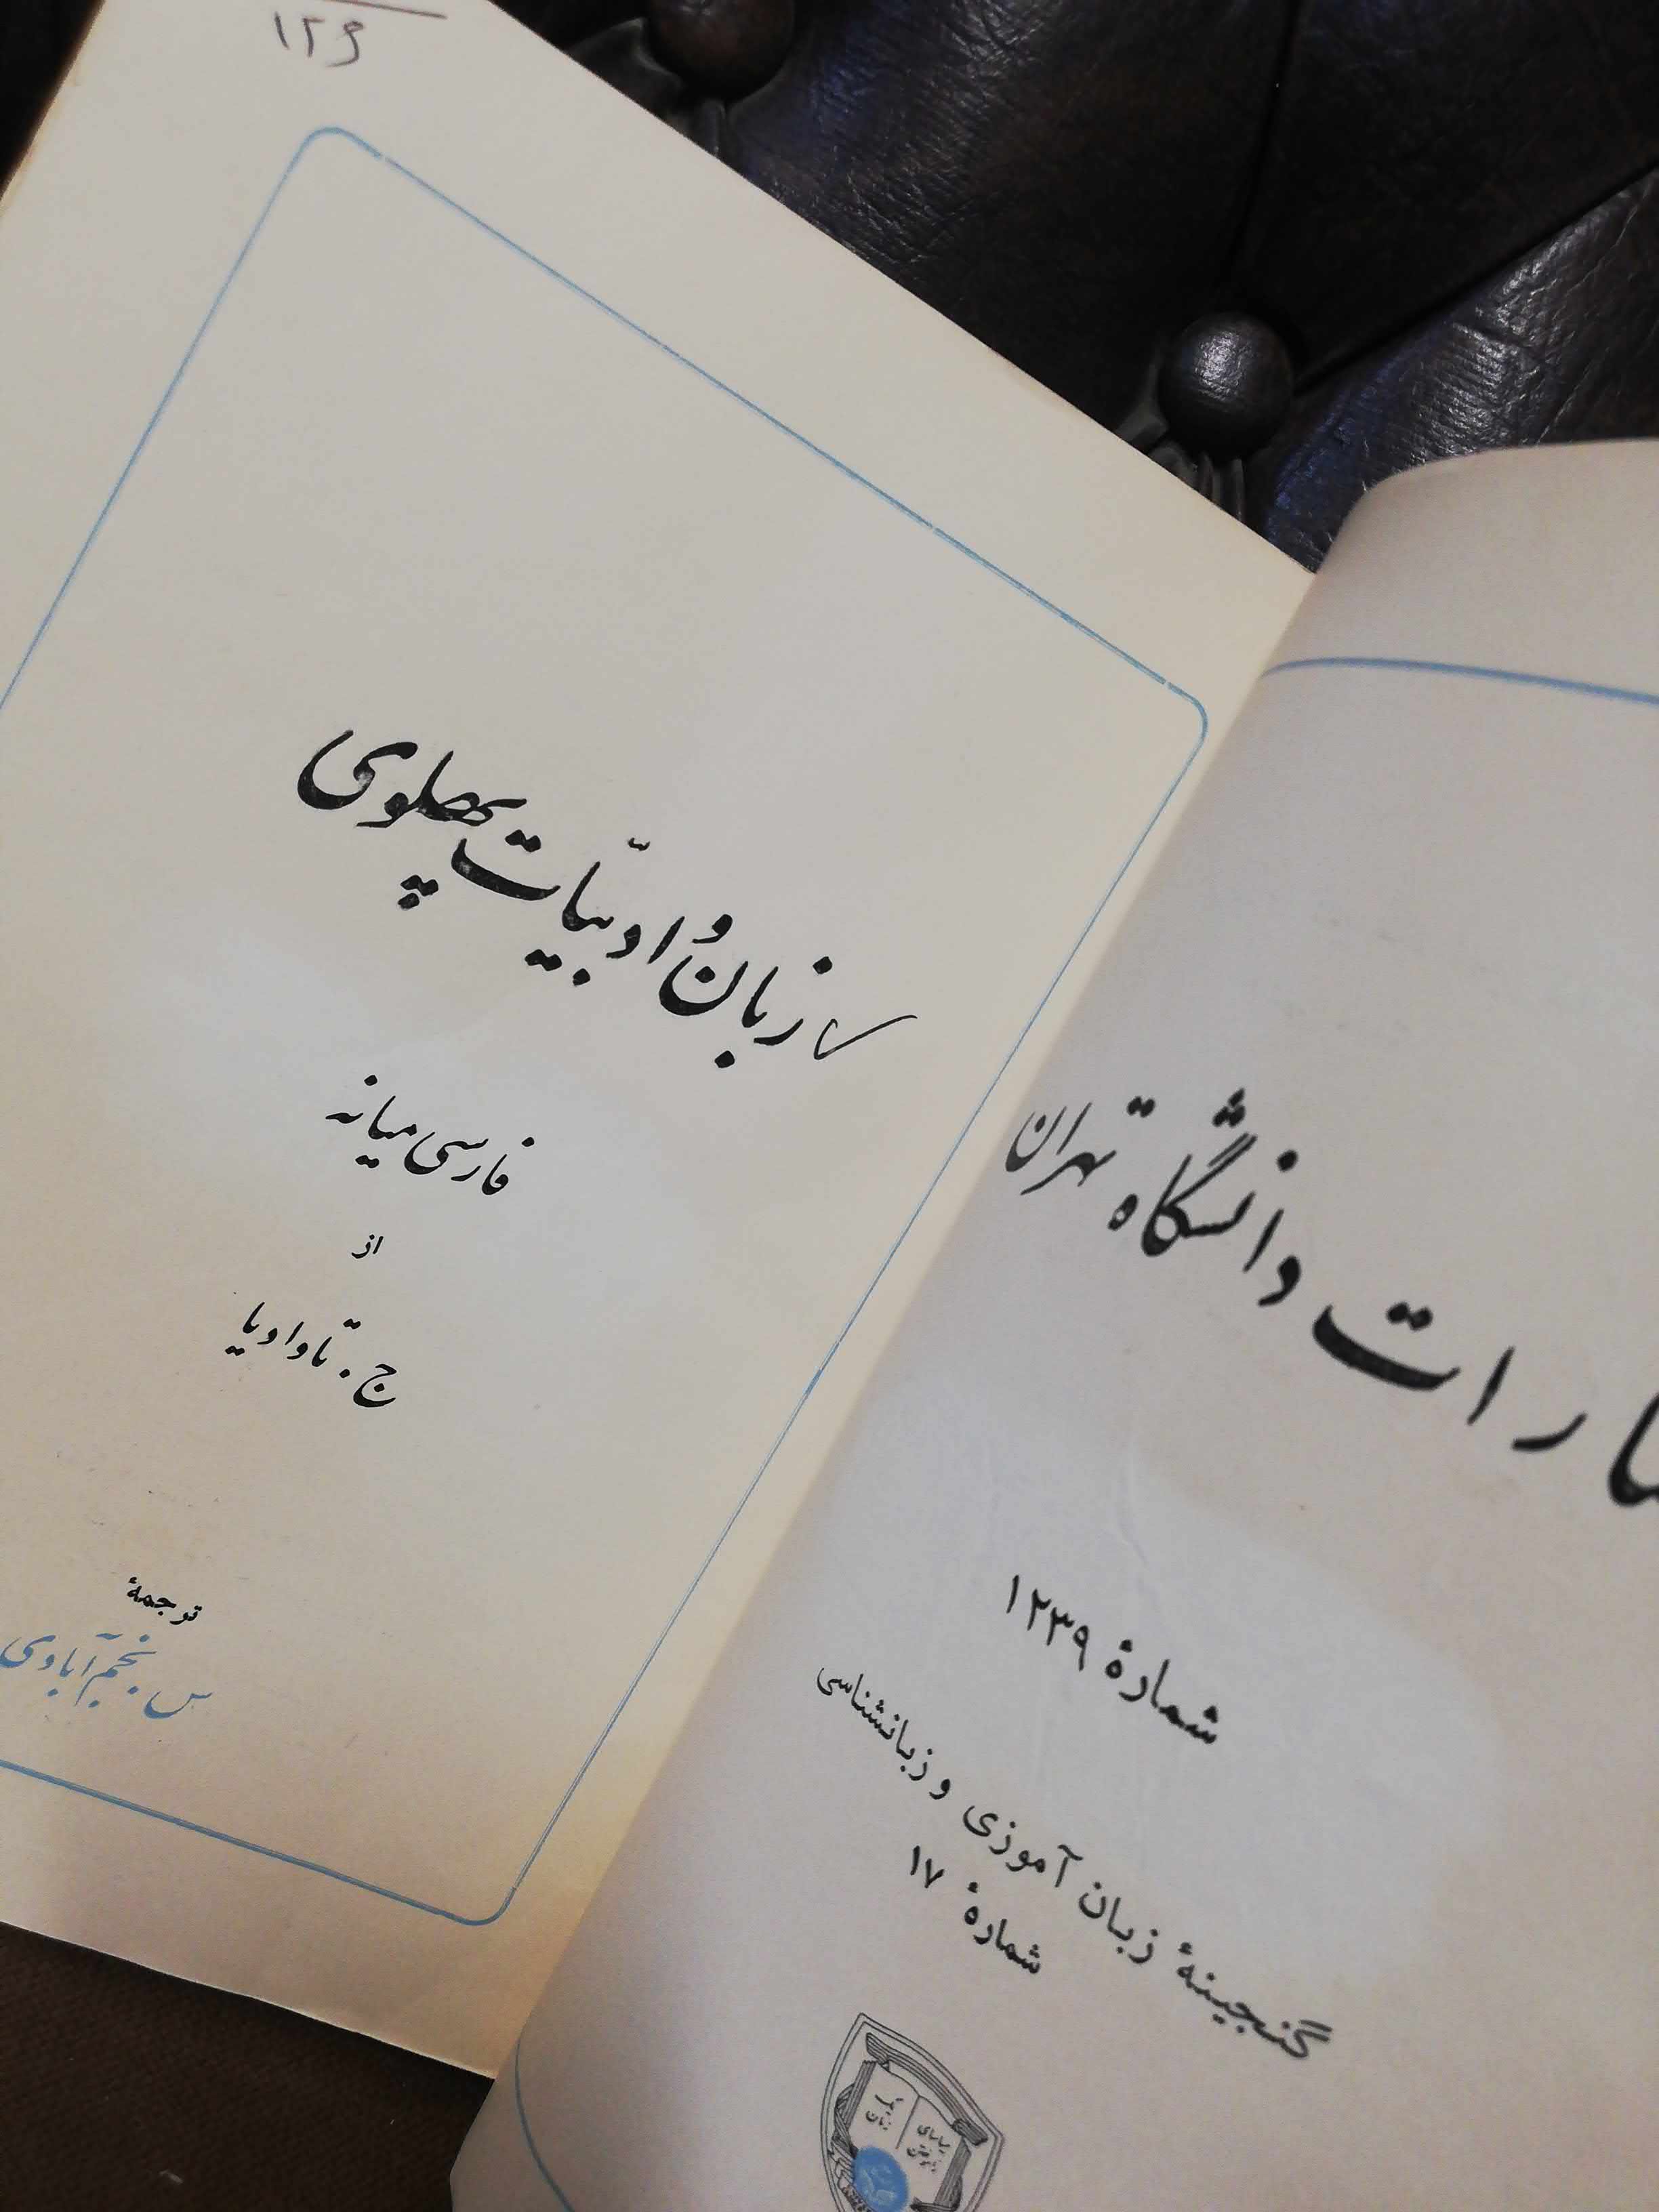 ۱۲۶
زبان و ادبیّات پهلوی
فارسی میانه
از
ج . تاوادیا
ترجمهٔ
س . نجم آبادی
دانشگاه تهران
شمارهٔ ۱۲۳۹
گنجینهٔ زبان آموزی و زبانشناسی
شمارهٔ ۱۷